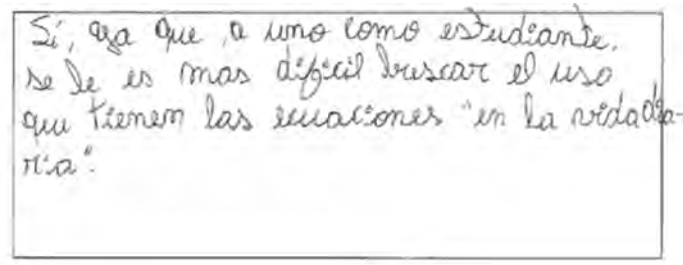 Si, ya que, a uno como estudiante.
se le es mas dificil buscar el uso
que tienen las ecuaciones "en la vida dia-
ria".